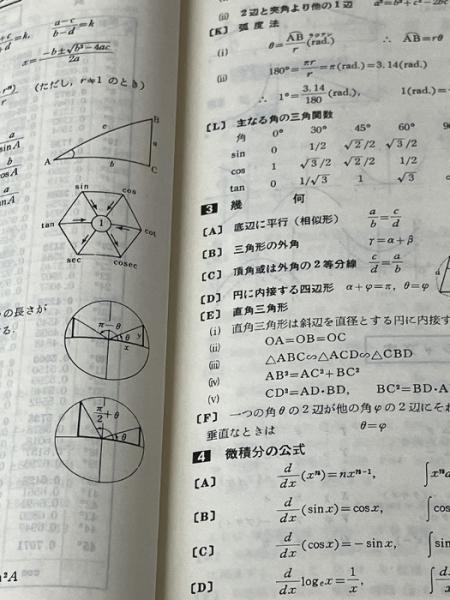 a+c/b+d=k a-c/b-d=k
x=-b±√b²-4ac/2a
(ただし，r≠1 のとき)
B
c
a
A
b
C
sin
cos
tan
1
cot
sec
cosec
の長さが
π-θ
y
θ
x
π/2+θ
θ
(ii) 2辺と夾角より他の1辺 a²=b²+c²-2bc
[K] 弧度法
(i) θ=AB/r(rad.) ラジアン ∴ AB=rθ
(ii) 180°=πr/r=π(rad.)=3.14(rad.)
∴ 1°=3.14/180(rad.), 1(rad.)=
[L] 主なる角の三角関数
角 0° 30° 45° 60°
sin 0 1/2 √2/2 √3/2
cos 1 √3/2 √2/2 1/2
tan 0 1/√3 1 √3
3 幾何
[A] 底辺に平行(相似形) a/b=c/d
[B] 三角形の外角 γ=α+β
[C] 頂角或は外角の2等分線 c/d=a/b
[D] 円に内接する四辺形 α+φ=π, θ=φ
[E] 直角三角形
(i) 直角三角形は斜辺を直径とする円に内接す
(ii) OA=OB=OC
(iii) △ABC∽△ACD∽△CBD
(iv) AB²=AC²+BC²
(v) CD²=AD·BD, BC²=BD·A
[F] 一つの角θの2辺が他の角φの2辺にそれ
垂直なときは θ=φ
4 微積分の公式
[A] d/dx(xⁿ)=nxⁿ⁻¹,
[B] d/dx(sinx)=cosx, ∫cos
[C] d/dx(cosx)=-sinx, ∫sin
[D] d/dx logₑx=1/x,